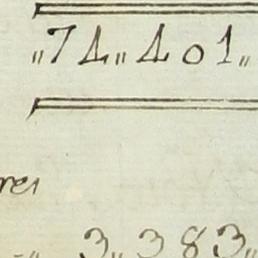 „74„401„
rei
-„ 3„383„